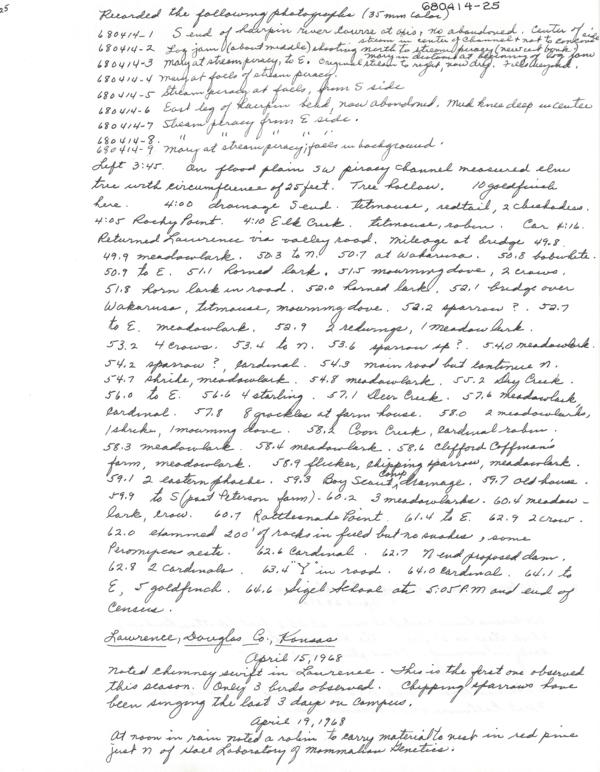 25
680414-25
Recorded the following photographs (35 mm color)
680414-1 S end of hairpin river course at oxis, no abandoned. Center of
stream in center of channel + not to
680414-2 Log jam (about middle) shooting north to stream piracy (new cut bank)
Mary in distance at beginning of log jam
680414-3 Mary at stream piracy, to E. Original stream to right, now dry. Fell
680414-4 Mary at focls of stream piracy.
680414-5 Stream piracy at focls, from S side
680414-6 East leg of hairpin bend, now abandoned. Mud knee deep in center
680414-7 Stream piracy from E side.
680414-8. " " " "
680414-9 Mary at stream piracy; focls in background.
Left 3:45. On flood plain SW piracy channel measured elm
tree with circumference of 25 feet. Tree hollow. 10 goldfinch
here. 4:00 drainage S end. titmouse, redtail, 2 chickadees.
4:05 Rocky Point. 4:10 Elk Creek. titmouse, robin. Car 4:16.
Returned Lawrence via valley road. Mileage at bridge 49.8.
49.9 meadowlark. 50.3 to N. 50.7 at Wakarusa. 50.8 bobwhite.
50.9 to E. 51.1 horned lark. 51.5 mourning dove, 2 crows.
51.8 horn lark in road. 52.0 horned lark. 52.1 bridge over
Wakarusa, titmouse, mourning dove. 52.2 sparrow ?. 52.7
to E. meadowlark. 52.9 2 redwings, 1 meadowlark.
53.2 4 crows. 53.4 to N. 53.6 sparrow sp? 54.0 meadowlark.
54.2 sparrow ?, cardinal. 54.3 main road but continue N.
54.7 shrike, meadowlark. 54.8 meadowlark. 55.2 Dry Creek.
56.0 to E. 56.6 4 starling. 57.1 Deer Creek. 57.6 meadowlark,
cardinal. 57.8 8 grackles at farm house. 58.0 2 meadowlarks,
1 shrike, 1 mourning dove. 58.2 Coon Creek, cardinal robin.
58.3 meadowlark. 58.4 meadowlark. 58.6 Clifford Coffman's
farm, meadowlark. 58.9 flicker, chipping sparrow, meadowlark.
59.1 2 eastern phoebe. 59.3 Boy Scout camp, drainage. 59.7 old house.
59.9 to S (past Peterson farm). 60.2 3 meadowlarks. 60.4 meadow-
lark, crow. 60.7 Rattlesnake Point. 61.4 to E. 62.9 2 crow.
62.0 examined 200' of rocks in field but no snakes, some
Peromyscus nests. 62.6 Cardinal. 62.7 N end proposed dam.
62.8 2 cardinals. 63.4 "Y" in road. 64.0 cardinal. 64.1 to
E, 5 goldfinch. 64.6 Sigel School at 5:05 P.M and end of
census.
Lawrence, Douglas Co., Kansas
April 15, 1968
Noted chimney swift in Lawrence. This is the first one observed
this season. Only 3 birds observed. Chipping sparrows have
been singing the last 3 days on campus.
April 19, 1968
At noon in rain noted a robin to carry material to nest in red pine
just N of Hall Laboratory of Mammalian Genetics.